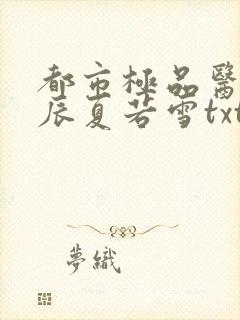 都市極品醫
辰夏若雪txt
夢織